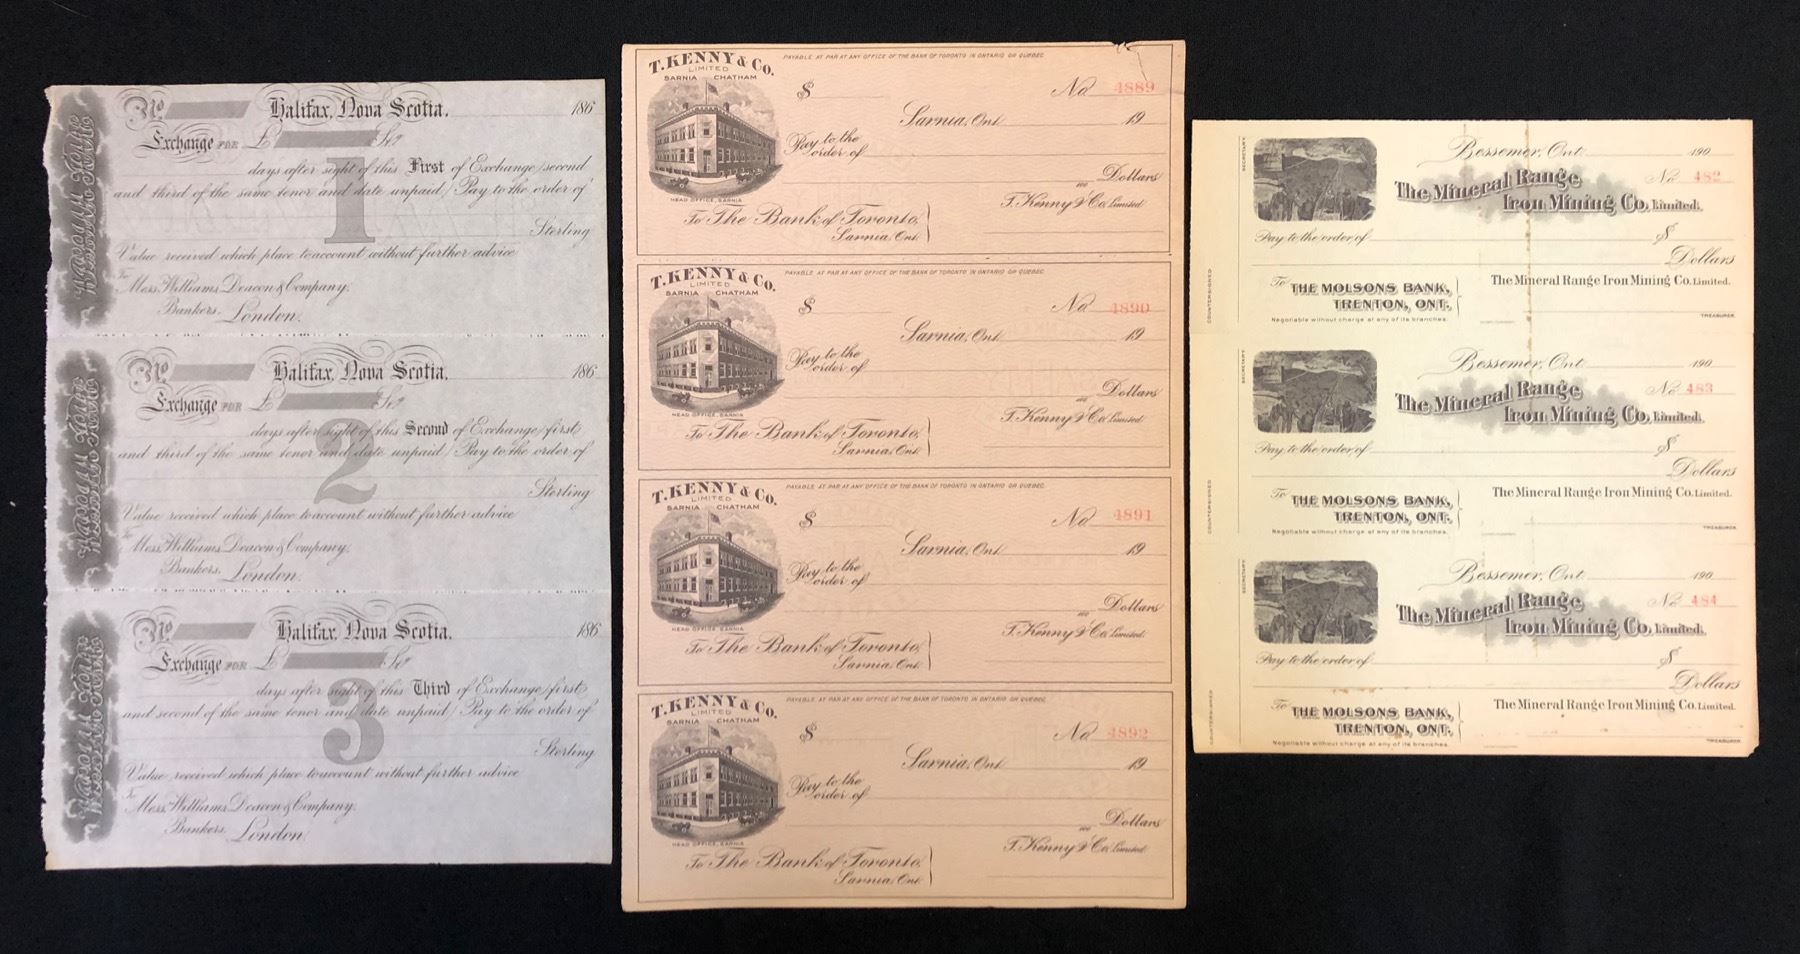 No
Halifax, Nova Scotia. 186
Exchange FOR £ Stg
1
days after sight of this First of Exchange (second
and third of the same tenor and date unpaid) Pay to the order of
Sterling
Value received which place to account without further advice
To
Mess. Williams, Deacon & Company.
Bankers. London.
No
Halifax, Nova Scotia. 186
Exchange FOR £ Stg
2
days after sight of this Second of Exchange (first
and third of the same tenor and date unpaid) Pay to the order of
Sterling
Value received which place to account without further advice
To
Mess. Williams, Deacon & Company.
Bankers. London.
No
Halifax, Nova Scotia. 186
Exchange FOR £ Stg
3
days after sight of this Third of Exchange (first
and second of the same tenor and date unpaid) Pay to the order of
Sterling
Value received which place to account without further advice
To
Mess. Williams, Deacon & Company.
Bankers. London.
T. KENNY & Co.
LIMITED
SARNIA CHATHAM
HEAD OFFICE, SARNIA
PAYABLE AT PAR AT ANY OFFICE OF THE BANK OF TORONTO IN ONTARIO OR QUEBEC
$ No 4889
Sarnia, Ont. 19
Pay to the
order of
100 Dollars
T. Kenny & Co. Limited
To The Bank of Toronto,
Sarnia, Ont.
T. KENNY & Co.
LIMITED
SARNIA CHATHAM
HEAD OFFICE, SARNIA
PAYABLE AT PAR AT ANY OFFICE OF THE BANK OF TORONTO IN ONTARIO OR QUEBEC
$ No 4890
Sarnia, Ont. 19
Pay to the
order of
100 Dollars
T. Kenny & Co. Limited
To The Bank of Toronto,
Sarnia, Ont.
T. KENNY & Co.
LIMITED
SARNIA CHATHAM
HEAD OFFICE, SARNIA
PAYABLE AT PAR AT ANY OFFICE OF THE BANK OF TORONTO IN ONTARIO OR QUEBEC
$ No 4891
Sarnia, Ont. 19
Pay to the
order of
100 Dollars
T. Kenny & Co. Limited
To The Bank of Toronto,
Sarnia, Ont.
T. KENNY & Co.
LIMITED
SARNIA CHATHAM
HEAD OFFICE, SARNIA
PAYABLE AT PAR AT ANY OFFICE OF THE BANK OF TORONTO IN ONTARIO OR QUEBEC
$ No 4892
Sarnia, Ont. 19
Pay to the
order of
100 Dollars
T. Kenny & Co. Limited
To The Bank of Toronto,
Sarnia, Ont.
SECRETARY
COUNTERSIGNED
Bessemer, Ont. 190
The Mineral Range No. 482
Iron Mining Co. Limited.
Pay to the order of $
Dollars
To THE MOLSONS BANK,
TRENTON, ONT.
Negotiable without charge at any of its branches.
The Mineral Range Iron Mining Co. Limited.
TREASURER.
SECRETARY
COUNTERSIGNED
Bessemer, Ont. 190
The Mineral Range No. 483
Iron Mining Co. Limited.
Pay to the order of $
Dollars
To THE MOLSONS BANK,
TRENTON, ONT.
Negotiable without charge at any of its branches.
The Mineral Range Iron Mining Co. Limited.
TREASURER.
SECRETARY
COUNTERSIGNED
Bessemer, Ont. 190
The Mineral Range No. 484
Iron Mining Co. Limited.
Pay to the order of $
Dollars
To THE MOLSONS BANK,
TRENTON, ONT.
Negotiable without charge at any of its branches.
The Mineral Range Iron Mining Co. Limited.
TREASURER.